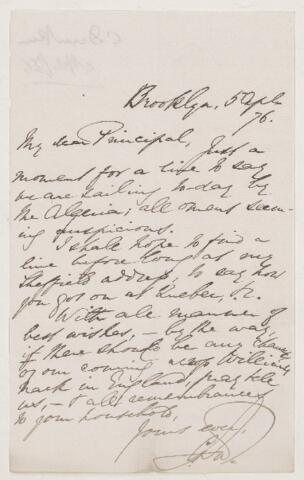 Brooklyn, 5 Apl
76.
My dear Principal, Just a
moment for a line to say
we are sailing to-day by
the Algeria; all omens seem-
ing auspicious.
I shall hope to find a
line before long at my
Sheffield address, to say how
you got on at Quebec, &c.
With all manner of
best wishes, — by the way,
if there should be any chance
of our coming across Williams
back in England, pray tell
us, — & all remembrances
to your household,
Yours ever,